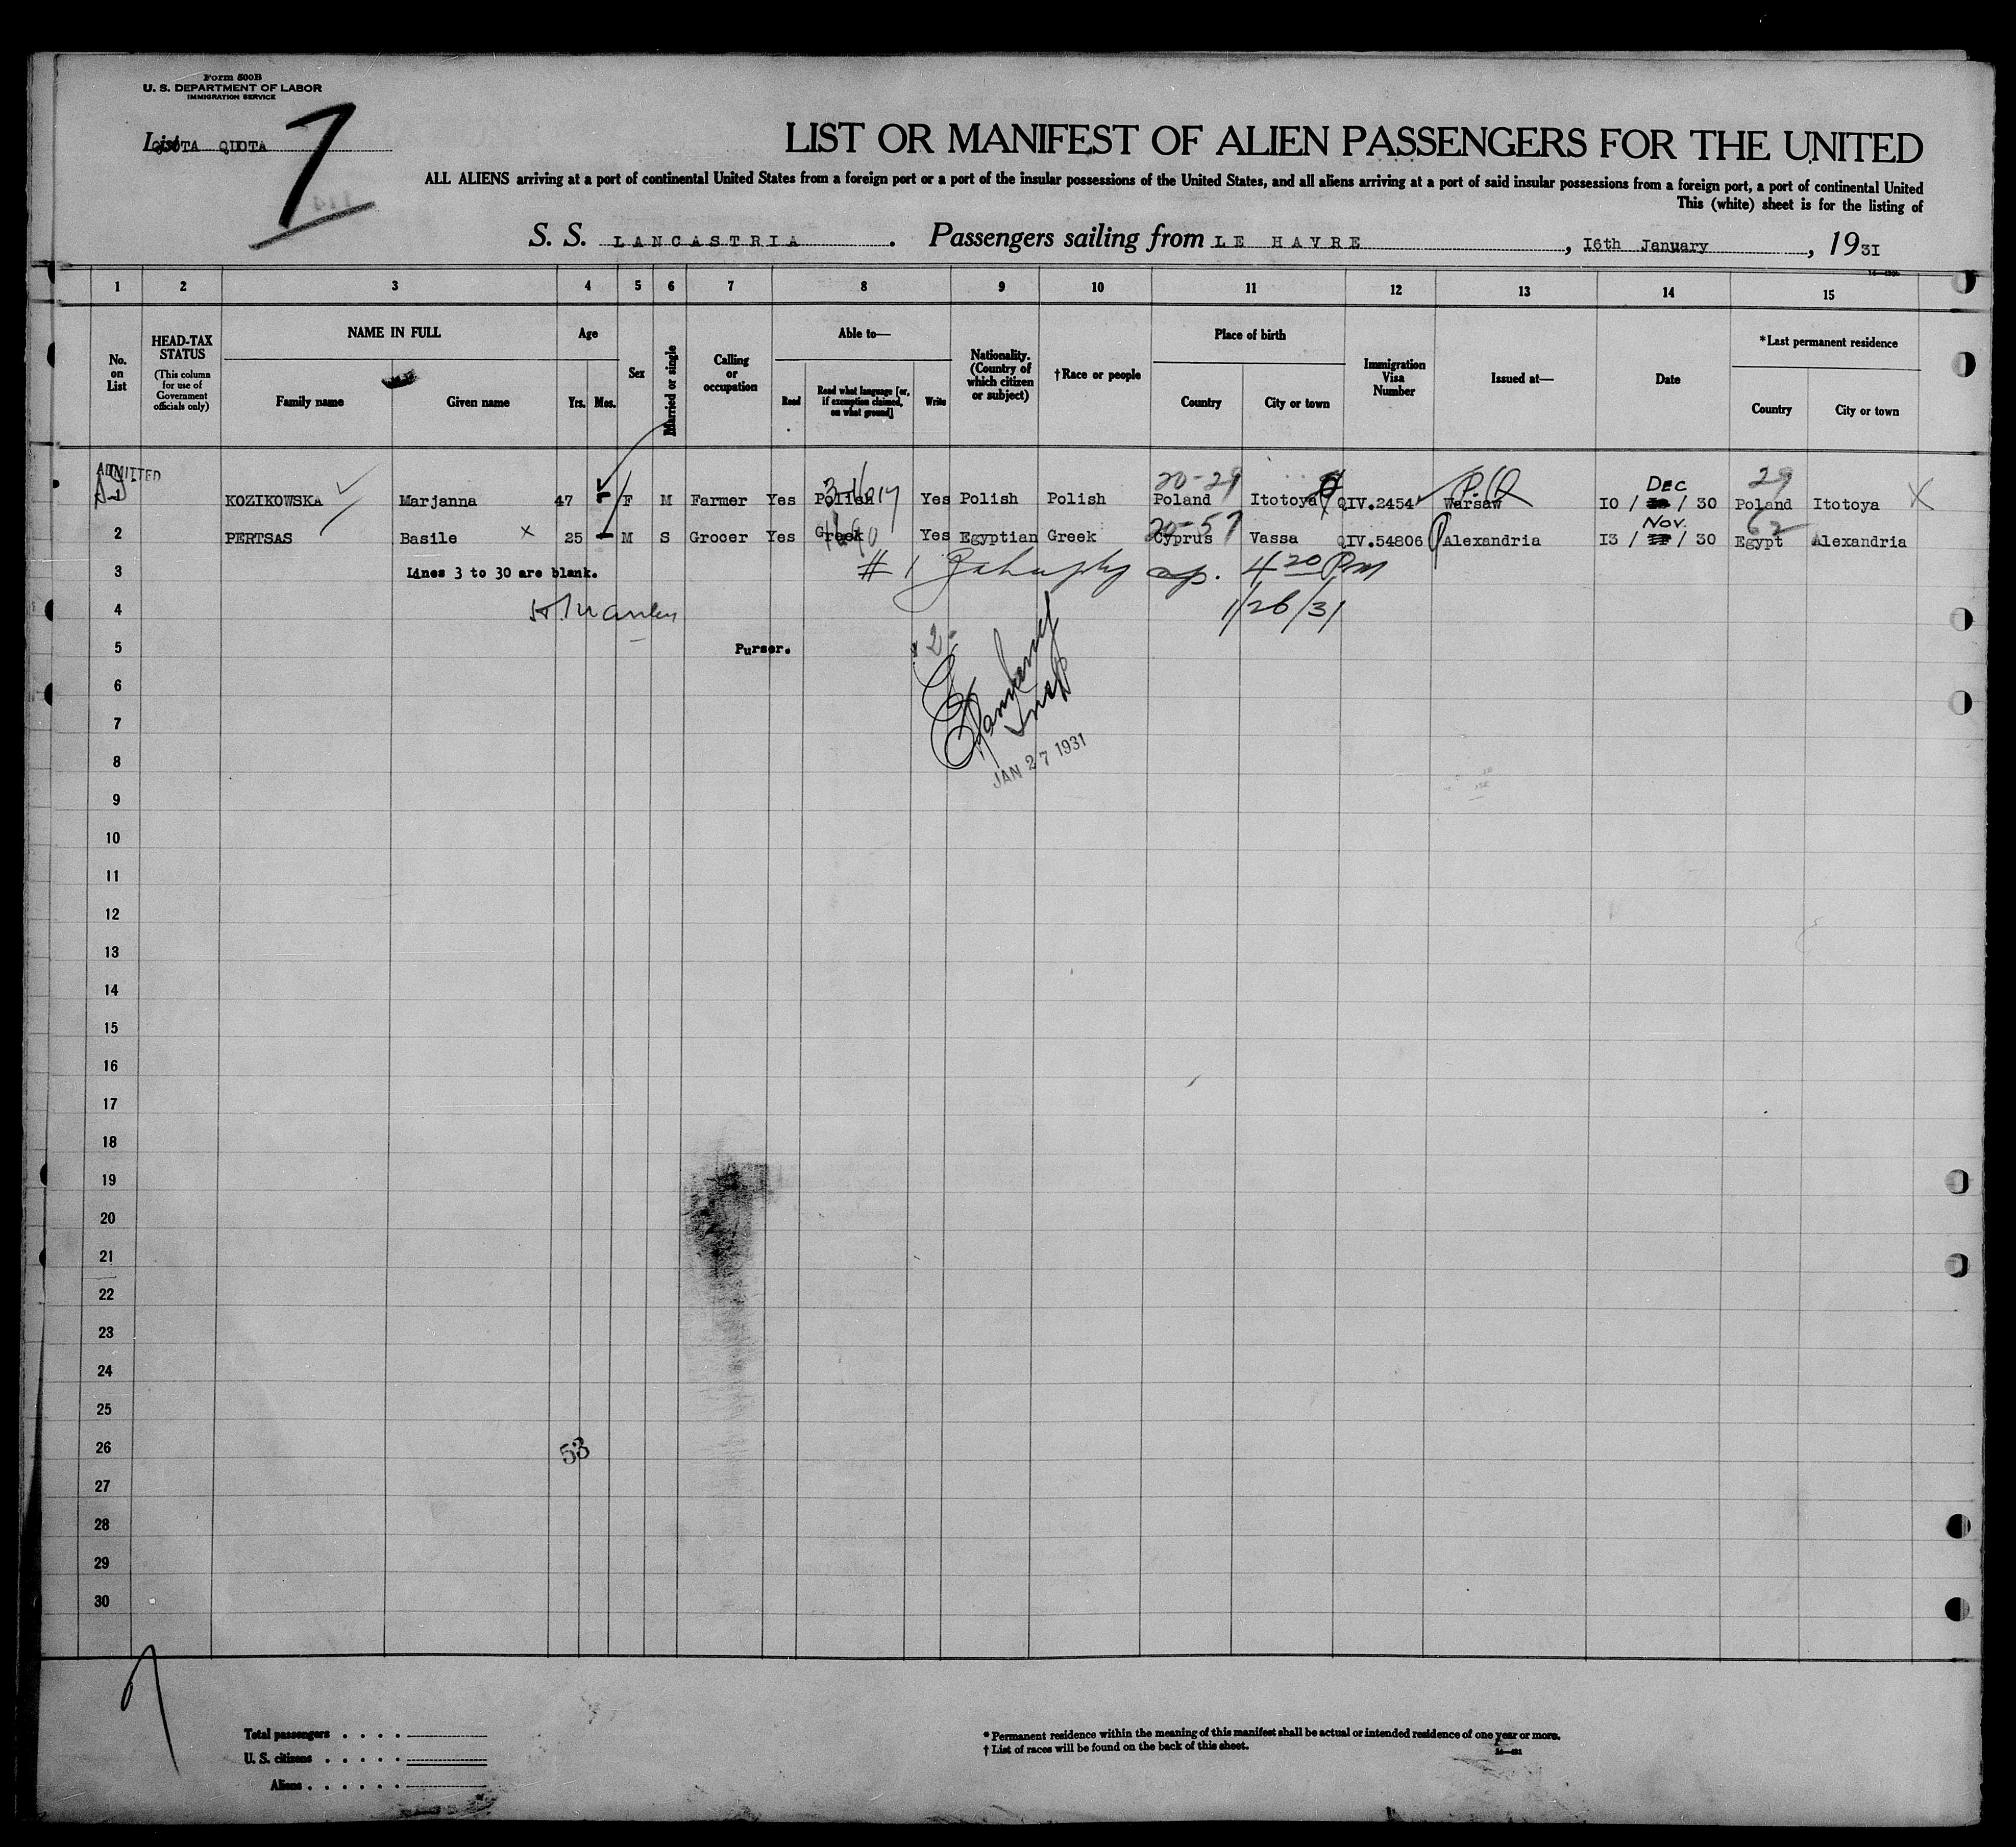 Form 500B
U. S. DEPARTMENT OF LABOR
IMMIGRATION SERVICE
List QUOTA QUOTA 7
LIST OR MANIFEST OF ALIEN PASSENGERS FOR THE UNITED
ALL ALIENS arriving at a port of continental United States from a foreign port or a port of the insular possessions of the United States, and all aliens arriving at a port of said insular possessions from a foreign port, a port of continental United
This (white) sheet is for the listing of
S. S. LANCASTRIA. Passengers sailing from LE HAVRE, 16th January, 1931
1 2 3 4 5 6 7 8 9 10 11 12 13 14 15
No. on List
HEAD-TAX STATUS
(This column for use of Government officials only)
NAME IN FULL
Family name Given name
Age
Yrs. Mos.
Sex
Married or single
Calling or occupation
Able to—
Read Read what language [or, if exemption claimed, on what ground] Write
Nationality. (Country of which citizen or subject)
†Race or people
Place of birth
Country City or town
Immigration Visa Number
Issued at—
Date
*Last permanent residence
Country City or town
ADMITTED
20-29 Dec 29
KOZIKOWSKA Marjanna 47 F M Farmer Yes Polish Yes Polish Polish Poland Itotoya QIV.2454 Warsaw I0 / / 30 Poland Itotoya X
20-57 Nov. 62
2 PERTSAS Basile x 25 M S Grocer Yes Greek Yes Egyptian Greek Cyprus Vassa QIV.54806 Alexandria I3 / / 30 Egypt Alexandria
3 Lines 3 to 30 are blank. # 1 4 20 Pm
4 1/26/31
5 Purser. 2
6
7
8 JAN 27 1931
9
10
11
12
13
14
15
16
17
18
19
20
21
22
23
24
25
26 53
27
28
29
30
7
Total passengers . . . .
U. S. citizens . . . . .
Aliens . . . . . .
* Permanent residence within the meaning of this manifest shall be actual or intended residence of one year or more.
† List of races will be found on the back of this sheet.